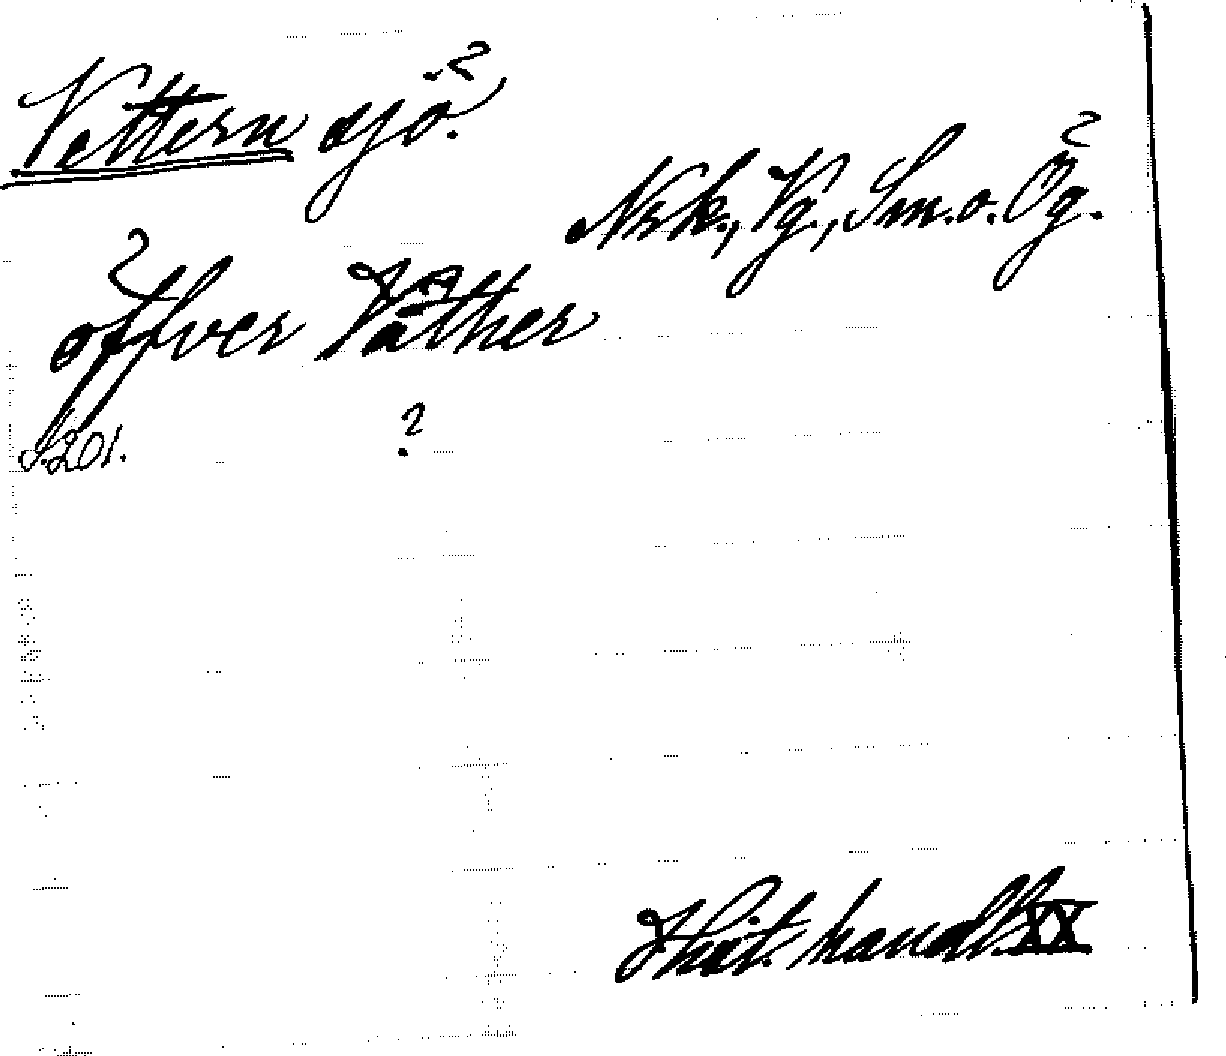 Vettern sjö.
Nrk., Vg., Sm. o. Ög.
öffver Väther
s. 201.
Hist. handl. XX